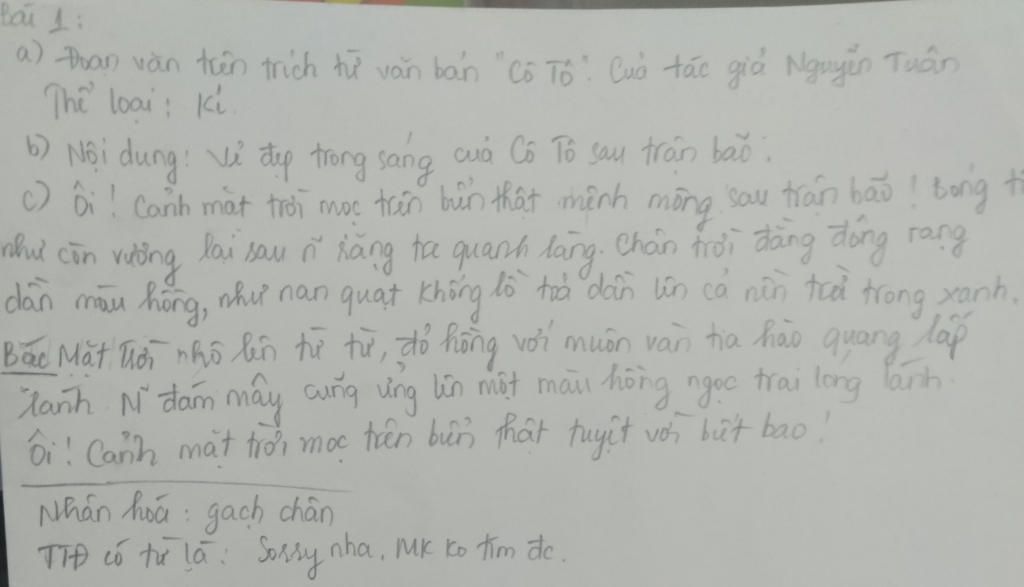 Bài 1:
a) Đoạn văn trên trích từ văn bản "Cô Tô". Của tác giả Nguyễn Tuân
Thể loại: Kí.
b) Nội dung: Vẻ đẹp trong sáng của Cô Tô sau trận bão.
c) Ôi! Cảnh mặt trời mọc trên biển thật mênh mông sau trận bão! Bóng
như còn vương lại sau rặng tre quanh làng. Chân trời đằng đông rạng
dần màu hồng, như nan quạt khổng lồ toả dần lên cả nền trời trong xanh.
Bác Mặt Trời nhô lên từ từ, đỏ hồng với muôn vàn tia hào quang lấp
lánh. N~ đám mây cũng ửng lên một màu hồng ngọc trai long lanh.
Ôi! Cảnh mặt trời mọc trên biển thật tuyệt vời biết bao!
Nhân hoá: gạch chân
TTĐ có từ là: Sorry nha, MK ko tìm đc.